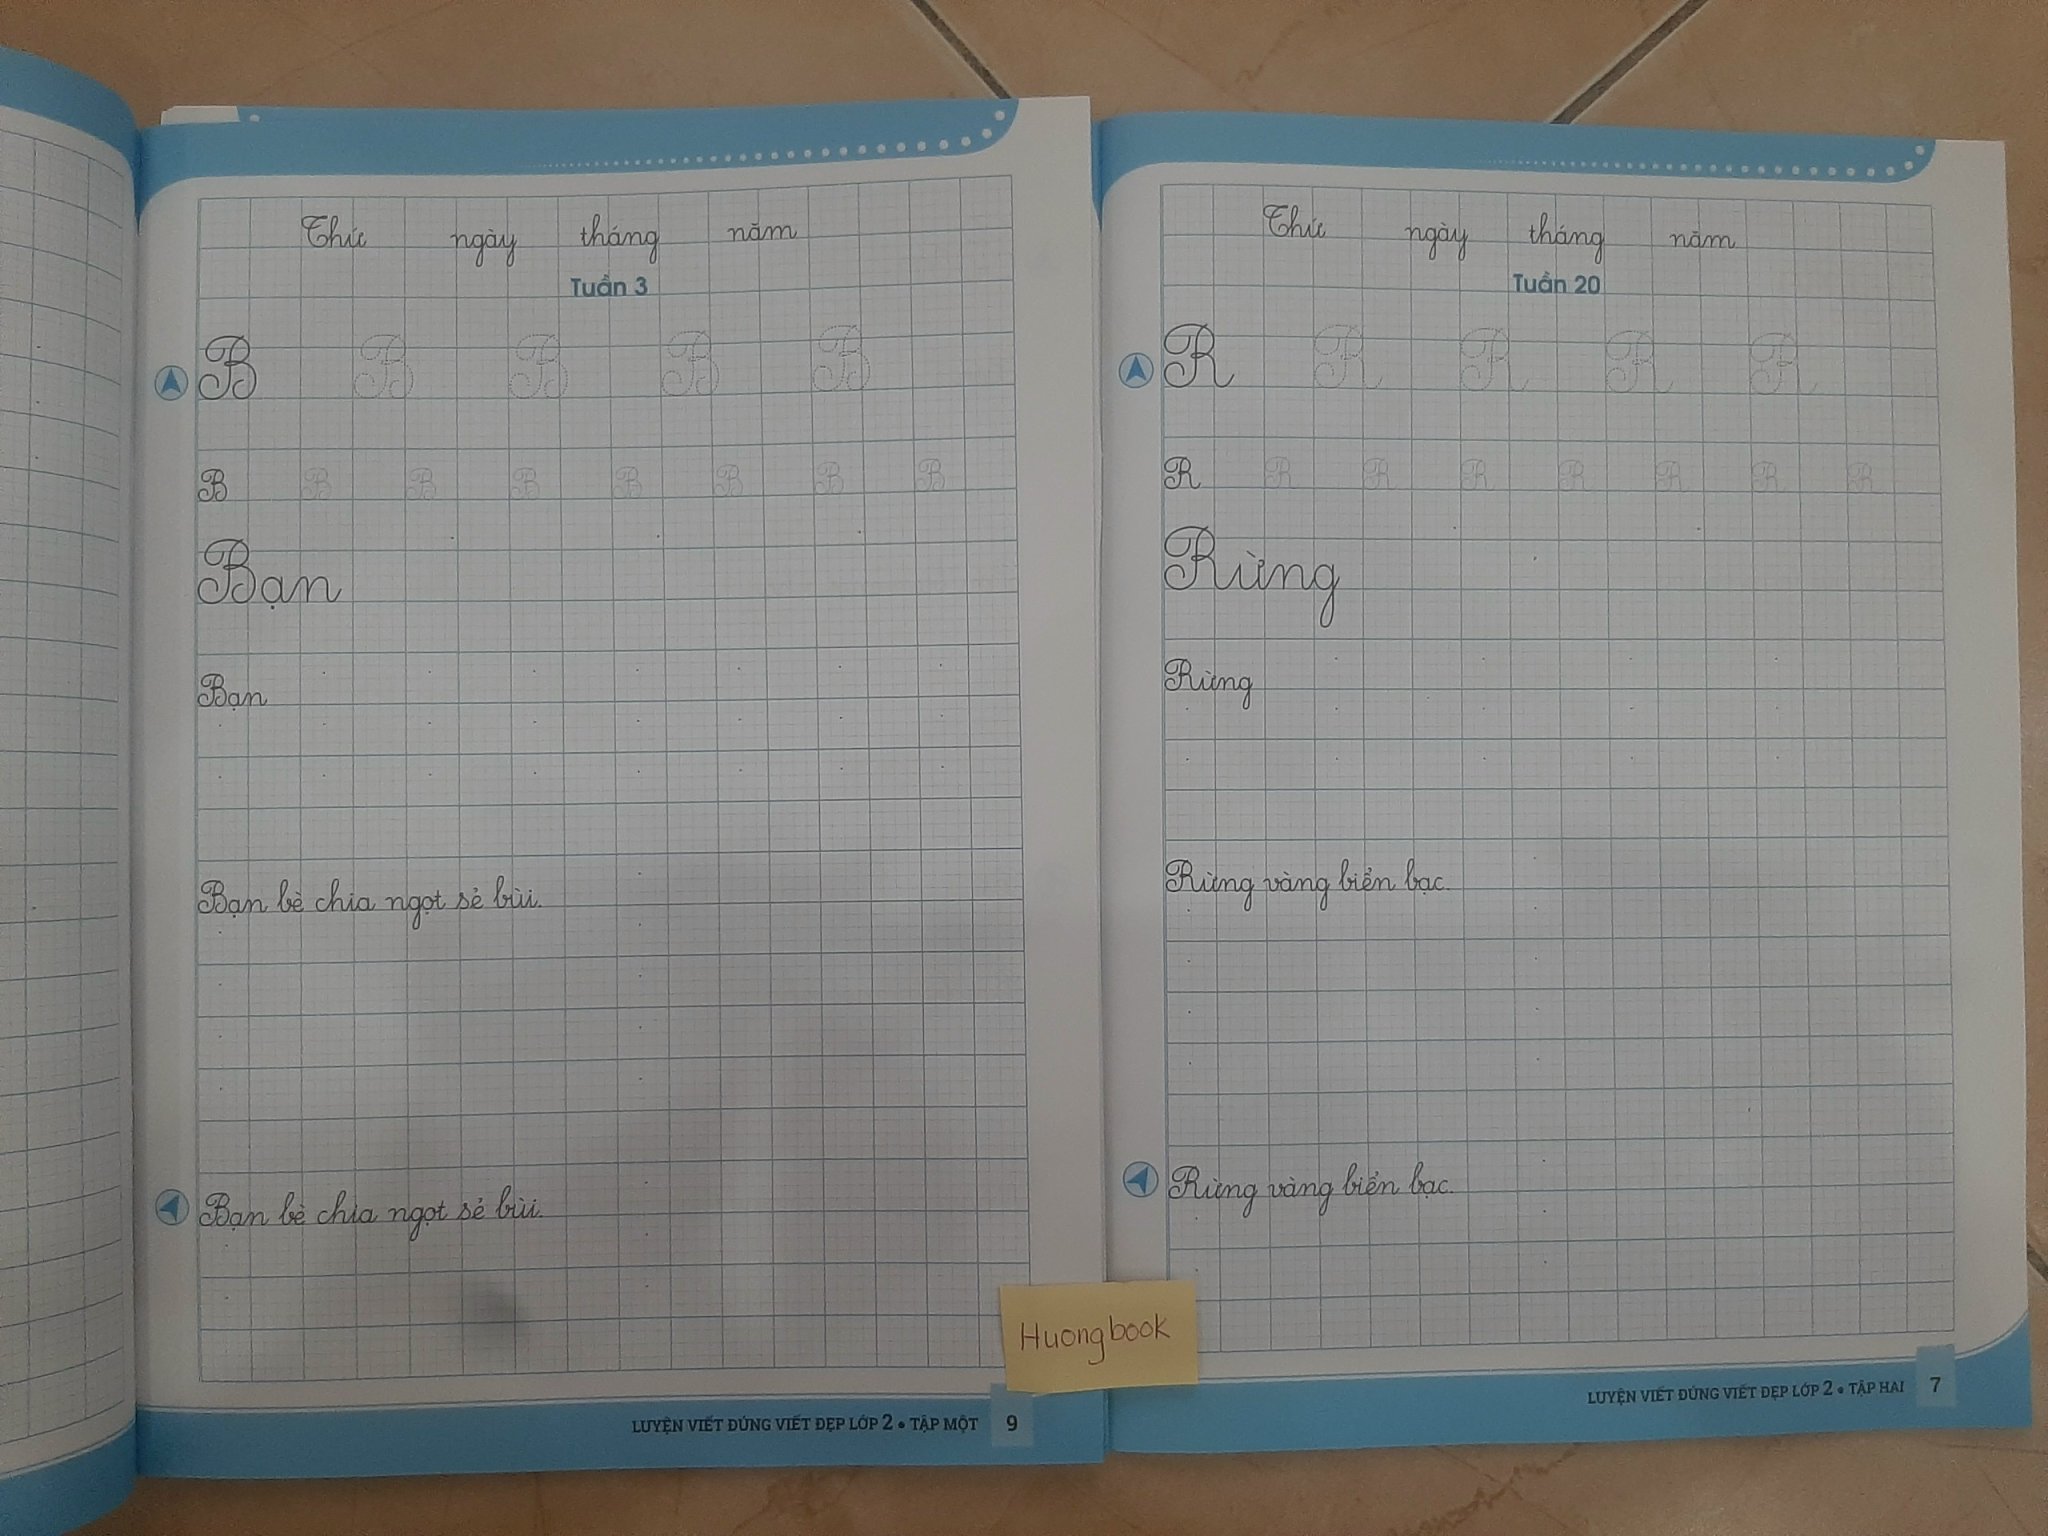 Thứ ngày tháng năm
Tuần 3
B B B B B
B B B B B B B B
Bạn
Bạn
Bạn bè chia ngọt sẻ bùi.
Bạn bè chia ngọt sẻ bùi.
LUYỆN VIẾT ĐÚNG VIẾT ĐẸP LỚP 2 • TẬP MỘT 9
Thứ ngày tháng năm
Tuần 20
R R R R R
R R R R R R R R
Rừng
Rừng
Rừng vàng biển bạc.
Rừng vàng biển bạc.
LUYỆN VIẾT ĐÚNG VIẾT ĐẸP LỚP 2 • TẬP HAI 7
Huongbook